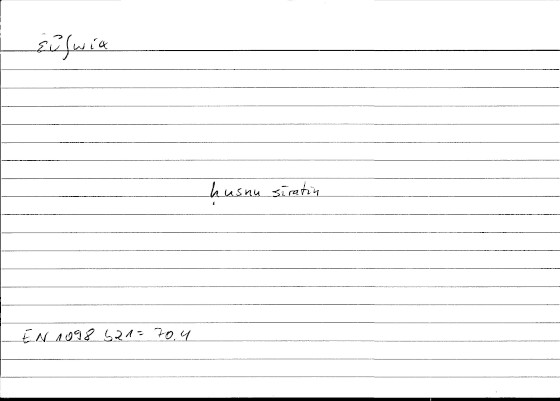 εὐζωία
ḥusnu sīratin
EN 1098 b21 = 70.4